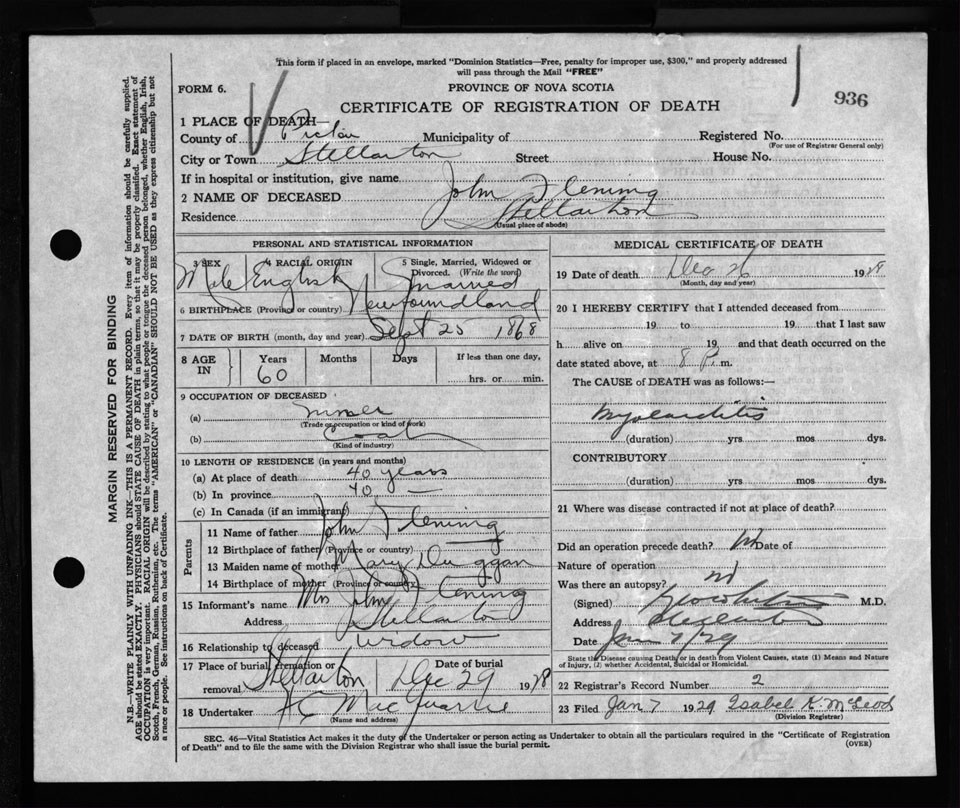 This form if placed in an envelope, marked "Dominion Statistics—Free, penalty for improper use, $300," and properly addressed
will pass through the Mail "FREE"
FORM 6.
PROVINCE OF NOVA SCOTIA
936
CERTIFICATE OF REGISTRATION OF DEATH
1 PLACE OF DEATH—
County of Pictou Municipality of Registered No.
(For use of Registrar General only)
City or Town Stellarton Street House No.
If in hospital or institution, give name
2 NAME OF DECEASED John Fleming
Residence Stellarton
(Usual place of abode)
PERSONAL AND STATISTICAL INFORMATION
3 SEX 4 RACIAL ORIGIN 5 Single, Married, Widowed or
Divorced. (Write the word)
Male English Married
6 BIRTHPLACE (Province or country) Newfoundland
7 DATE OF BIRTH (month, day and year) Sept 25 1868
8 AGE IN Years Months Days If less than one day,
60 hrs. or min.
9 OCCUPATION OF DECEASED
(a) miner
(Trade or occupation or kind of work)
(b) Coal
(Kind of industry)
10 LENGTH OF RESIDENCE (in years and months)
(a) At place of death 40 years
(b) In province 40 —
(c) In Canada (if an immigrant)
Parents
11 Name of father John Fleming
12 Birthplace of father (Province or country)
13 Maiden name of mother Mary Duggan
14 Birthplace of mother (Province or country)
15 Informant's name Mrs John Fleming
Address Stellarton
16 Relationship to deceased widow
17 Place of burial, cremation or Date of burial
removal Stellarton Dec 29 1928
18 Undertaker MacQuarrie
(Name and address)
MEDICAL CERTIFICATE OF DEATH
19 Date of death Dec 26 1928
(Month, day and year)
20 I HEREBY CERTIFY that I attended deceased from
19 to 19 that I last saw
h alive on 19 and that death occurred on the
date stated above, at 8 P. m.
The CAUSE of DEATH was as follows:—
Myocarditis
(duration) yrs. mos dys.
CONTRIBUTORY
(duration) yrs. mos dys.
21 Where was disease contracted if not at place of death?
Did an operation precede death? no Date of
Nature of operation
Was there an autopsy? no
(Signed) M.D.
Address Stellarton
Date Jan 7/29
State the Disease causing Death, or in death from Violent Causes, state (1) Means and Nature
of Injury, (2) whether Accidental, Suicidal or Homicidal.
22 Registrar's Record Number 2
23 Filed Jan 7 1929 Isabel K. McLeod
(Division Registrar)
SEC. 46—Vital Statistics Act makes it the duty of the Undertaker or person acting as Undertaker to obtain all the particulars required in the "Certificate of Registration
of Death" and to file the same with the Division Registrar who shall issue the burial permit.
(OVER)
MARGIN RESERVED FOR BINDING
N.B.—WRITE PLAINLY WITH UNFADING INK—THIS IS A PERMANENT RECORD. Every item of information should be carefully supplied.
AGE should be stated EXACTLY. PHYSICIANS should STATE CAUSE OF DEATH in plain terms, so that it may be properly classified. Exact statement of
OCCUPATION is very important. RACIAL ORIGIN will be described by stating to what people or tongue the deceased person belonged, whether English, Irish,
Scotch, French, German, Russian, Ruthenian, etc. The terms "AMERICAN" or "CANADIAN" SHOULD NOT BE USED as they express citizenship but not
a race or people. See instructions on back of Certificate.